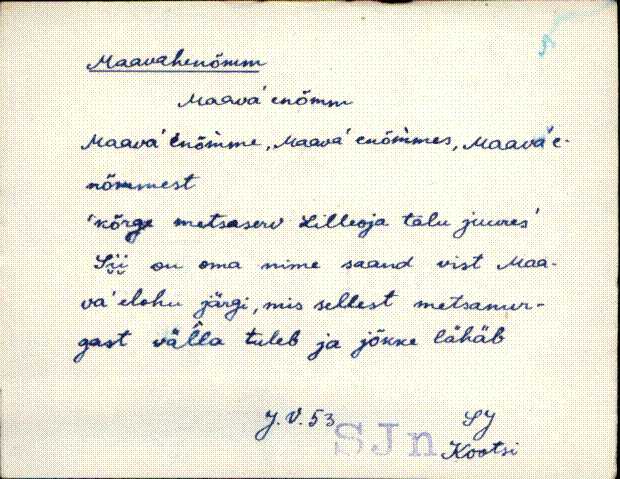 Maavahenõmm
Maava'enõmm
Maava'enõm̀me, Maava'enõm̀mes, Maava'e-
nõmmest
'kõrge metsaserv Lilleoja talu juures'
Sii on oma nime saand vist Maa-
va'elohu järgi, mis sellest metsanur-
gast vällà tuleb ja jõkke lähäb
J. V. 53 SJ
SJn Kootsi